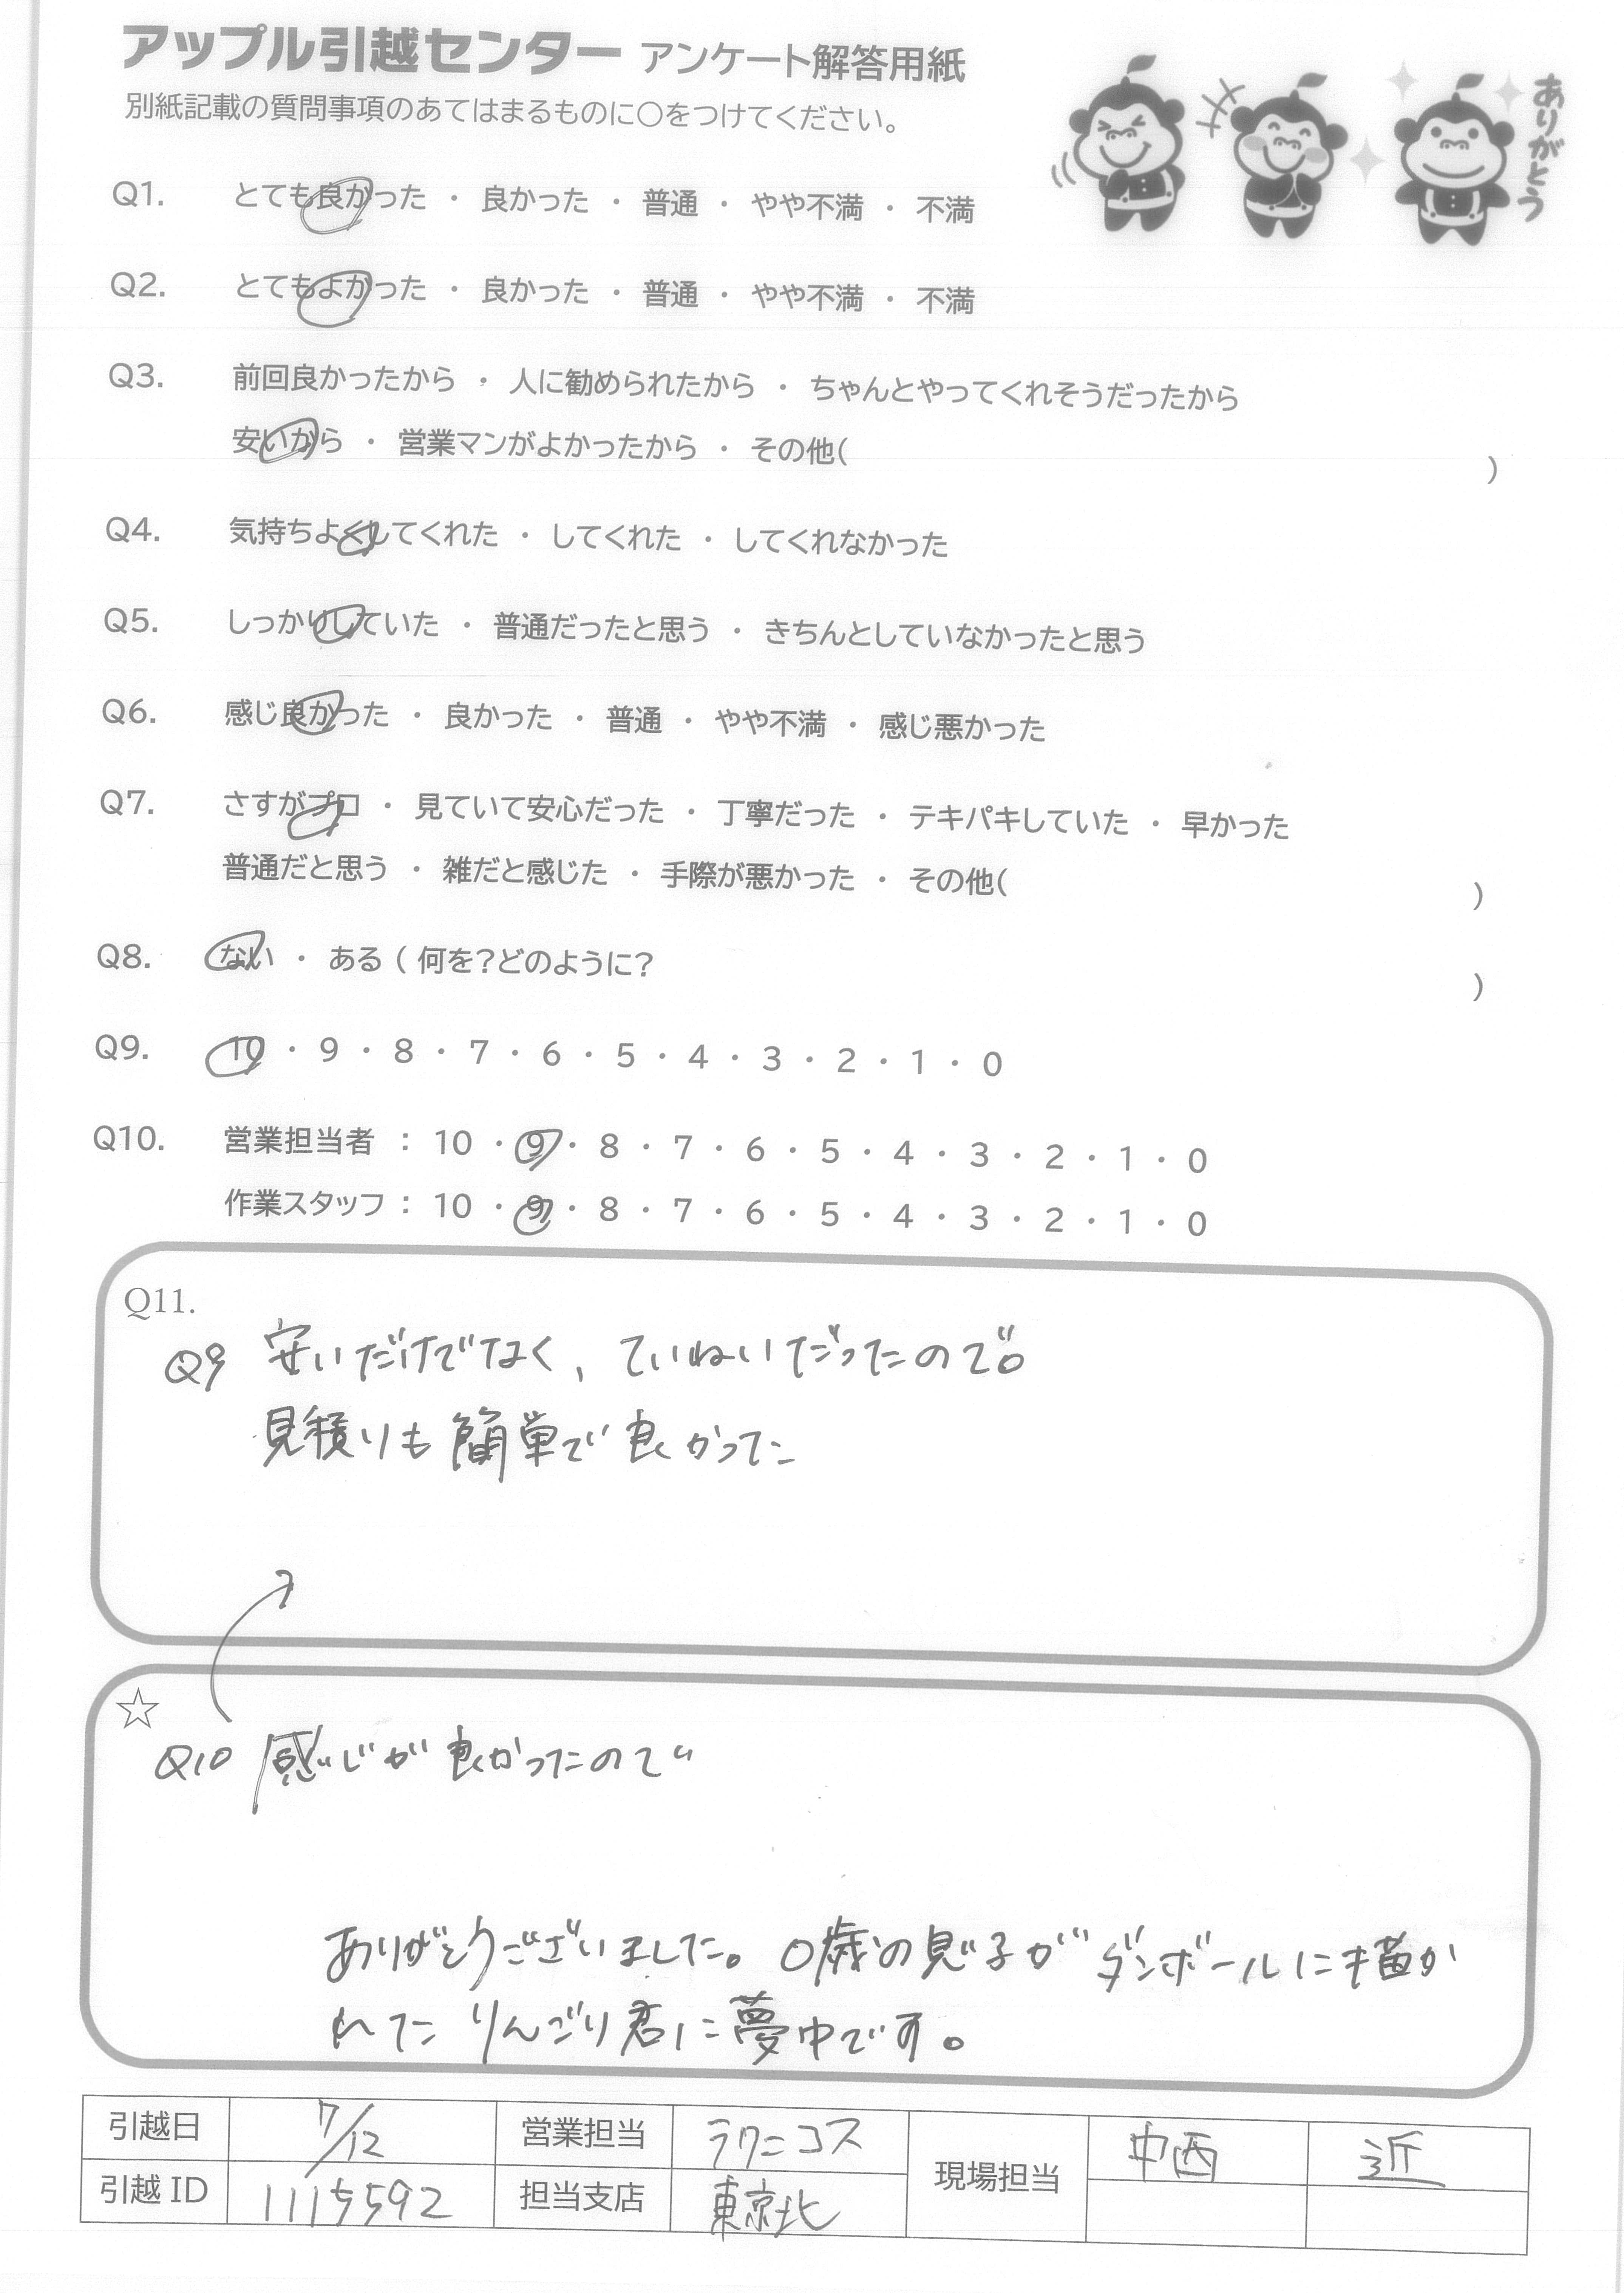 アップル引越センター アンケート解答用紙
別紙記載の質問事項のあてはまるものに○をつけてください。
ありがとう
Q1. とても良かった ・ 良かった ・ 普通 ・ やや不満 ・ 不満
Q2. とてもよかった ・ 良かった ・ 普通 ・ やや不満 ・ 不満
Q3. 前回良かったから ・ 人に勧められたから ・ ちゃんとやってくれそうだったから
安いから ・ 営業マンがよかったから ・ その他( )
Q4. 気持ちよくしてくれた ・ してくれた ・ してくれなかった
Q5. しっかりしていた ・ 普通だったと思う ・ きちんとしていなかったと思う
Q6. 感じ良かった ・ 良かった ・ 普通 ・ やや不満 ・ 感じ悪かった
Q7. さすがプロ ・ 見ていて安心だった ・ 丁寧だった ・ テキパキしていた ・ 早かった
普通だと思う ・ 雑だと感じた ・ 手際が悪かった ・ その他( )
Q8. ない ・ ある ( 何を?どのように? )
Q9. 10 ・ 9 ・ 8 ・ 7 ・ 6 ・ 5 ・ 4 ・ 3 ・ 2 ・ 1 ・ 0
Q10. 営業担当者 : 10 ・ 9 ・ 8 ・ 7 ・ 6 ・ 5 ・ 4 ・ 3 ・ 2 ・ 1 ・ 0
作業スタッフ : 10 ・ 9 ・ 8 ・ 7 ・ 6 ・ 5 ・ 4 ・ 3 ・ 2 ・ 1 ・ 0
Q11.
Q9 安いだけでなく、ていねいだったので。
見積りも簡単で良かった
☆
Q10 感じが良かったので
ありがとうございました。0歳の息子がダンボールに描か
れたりんごり君に夢中です。
引越日 7/12 営業担当 ラクニコス 現場担当 中西 近
引越 ID 1115592 担当支店 東京北